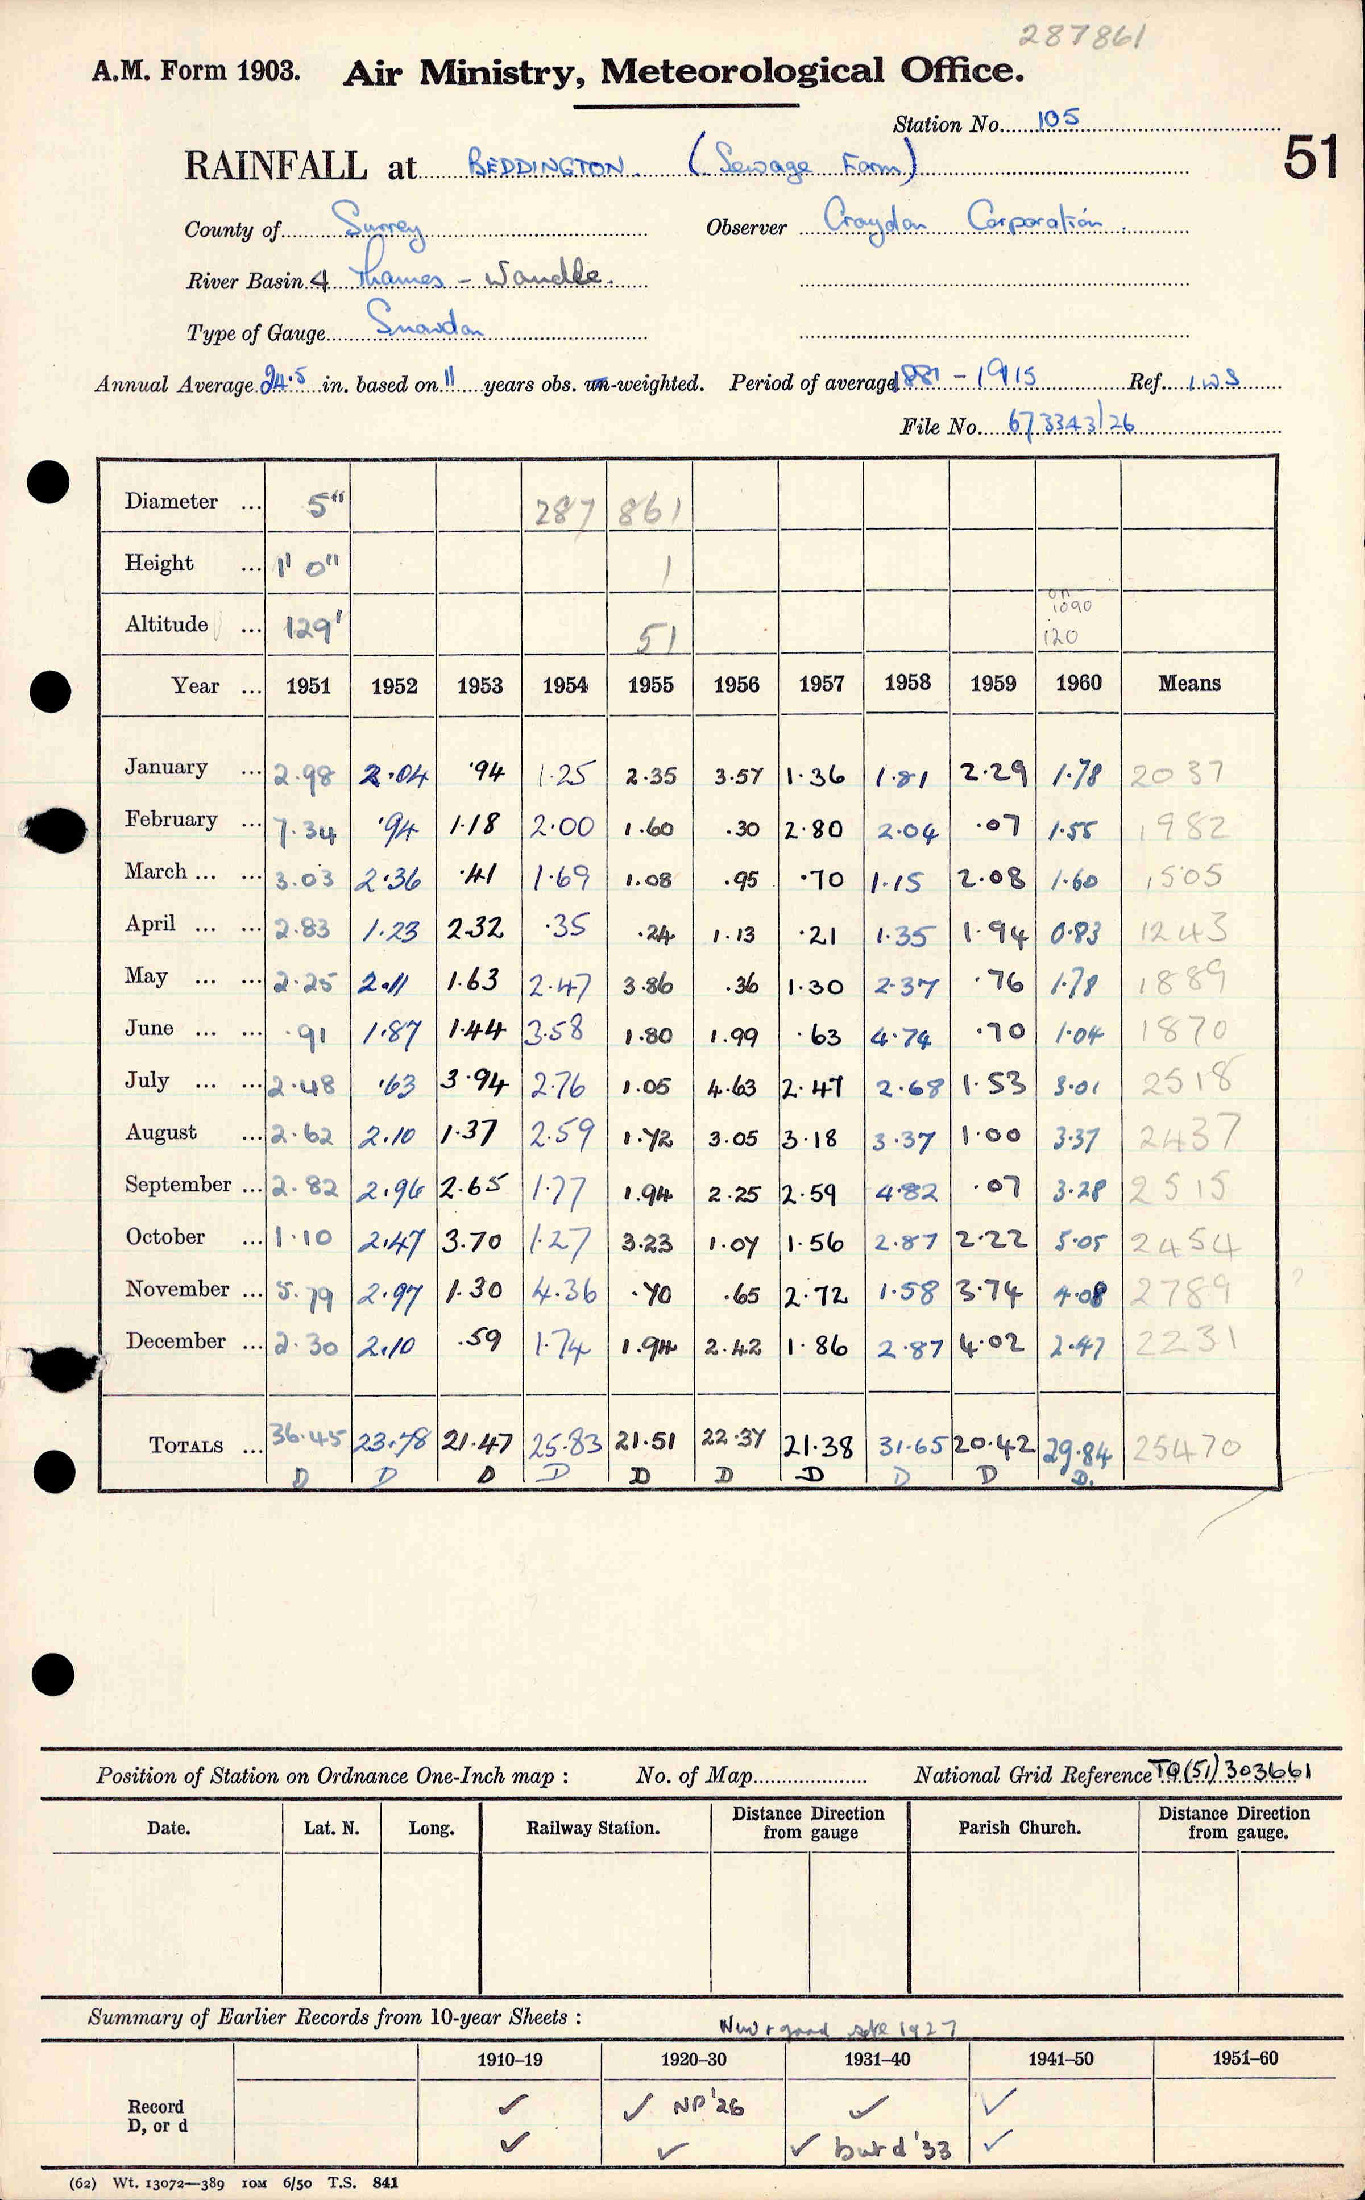 287861
A.M. Form 1903. Air Ministry, Meteorological Office.
Station No. 105
51
RAINFALL at BEDDINGTON. (Sewage Farm)
County of Surrey Observer Croydon Corporation.
River Basin 4 Thames - Wandle.
Type of Gauge Snowdon
Annual Average 24.5 in. based on 11 years obs. un-weighted. Period of average 1881 - 1915 Ref. IWS
File No. 673343/26
Diameter ... 5" 287 861
Height ... 1' 0" 1
Altitude ... 129' 51 on 1090 120
Year ... 1951 1952 1953 1954 1955 1956 1957 1958 1959 1960 Means
January ... 2.98 2.04 .94 1.25 2.35 3.57 1.36 1.81 2.29 1.78 2037
February ... 7.34 .94 1.18 2.00 1.60 .30 2.80 2.04 .07 1.55 1982
March ... ... 3.03 2.36 .41 1.69 1.08 .95 .70 1.15 2.08 1.60 1505
April ... ... 2.83 1.23 2.32 .35 .24 1.13 .21 1.35 1.94 0.83 1243
May ... ... 2.25 2.11 1.63 2.47 3.86 .36 1.30 2.37 .76 1.78 1889
June ... ... .91 1.87 1.44 3.58 1.80 1.99 .63 4.74 .70 1.04 1870
July ... ... 2.48 .63 3.94 2.76 1.05 4.63 2.47 2.68 1.53 3.01 2518
August ... 2.62 2.10 1.37 2.59 1.72 3.05 3.18 3.37 1.00 3.37 2437
September ... 2.82 2.96 2.65 1.77 1.94 2.25 2.59 4.82 .07 3.28 2515
October ... 1.10 2.47 3.70 1.27 3.23 1.07 1.56 2.87 2.22 5.05 2454
November ... 5.79 2.97 1.30 4.36 .70 .65 2.72 1.58 3.74 4.08 2789 ?
December ... 2.30 2.10 .59 1.74 1.94 2.42 1.86 2.87 4.02 2.47 2231
TOTALS ... 36.45 23.78 21.47 25.83 21.51 22.37 21.38 31.65 20.42 29.84 25470
D D D D D D D D D D.
Position of Station on Ordnance One-Inch map : No. of Map National Grid Reference TQ(51)303661
Date. Lat. N. Long. Railway Station. Distance Direction from gauge Parish Church. Distance Direction from gauge.
Summary of Earlier Records from 10-year Sheets : New + good site 1927
1910–19 1920–30 1931–40 1941–50 1951–60
Record ✓ ✓ NP'26 ✓ ✓
D, or d ✓ ✓ ✓ but d '33 ✓
(62) Wt. 13072—389 10M 6/50 T.S. 841